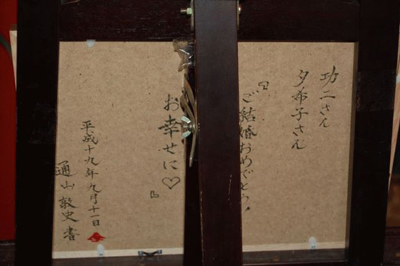 功二さん
夕布子さん
『ご結婚おめでとう!
お幸せに♡』
平成十九年九月十一日
通山敦史書